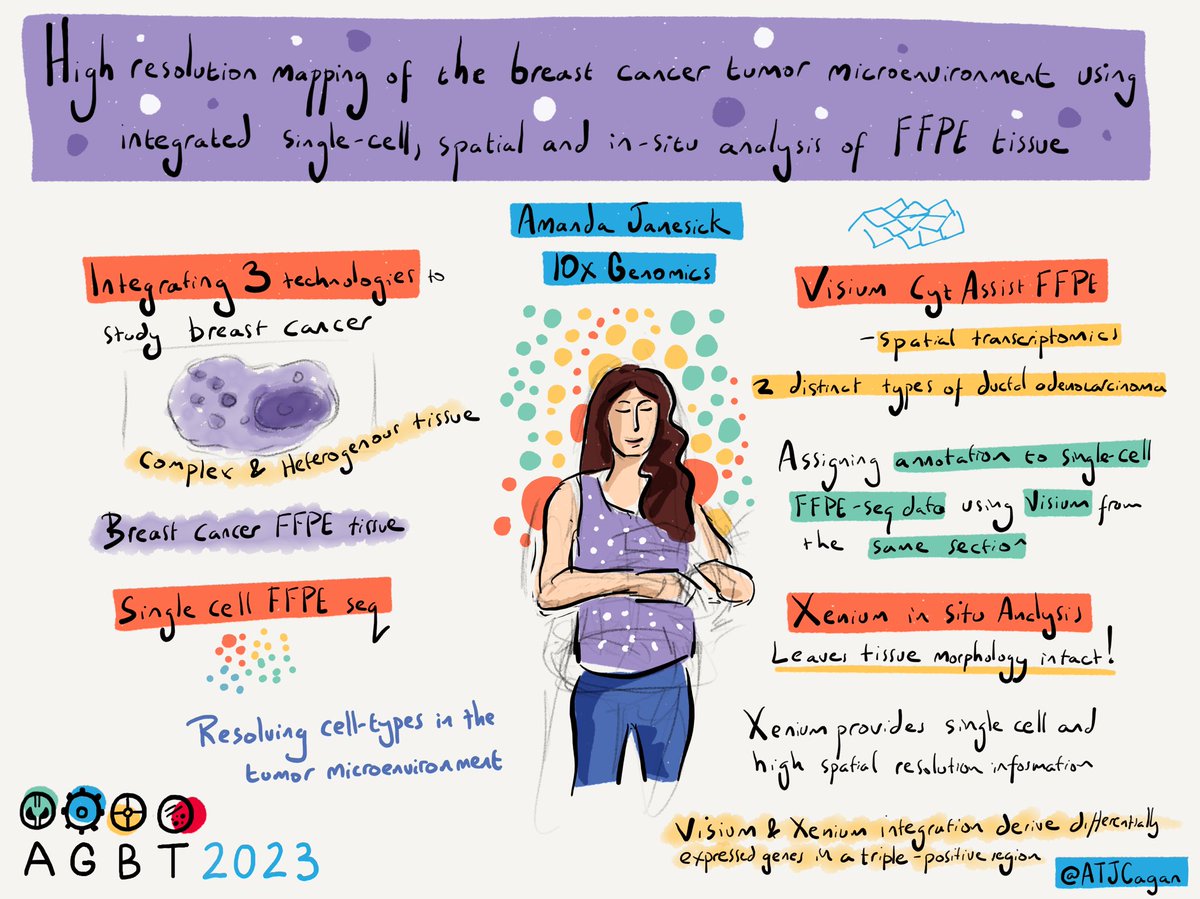 High resolution mapping of the breast cancer tumor microenvironment using
integrated single-cell, spatial and in-situ analysis of FFPE tissue
Amanda Janesick
10x Genomics
Integrating 3 technologies to
study breast cancer
Complex & Heterogenous tissue
Breast cancer FFPE tissue
Single cell FFPE seq
Resolving cell-types in the
tumor microenvironment
Visium Cyt Assist FFPE
- spatial transcriptomics
2 distinct types of ductal adenocarcinoma
Assigning annotation to single-cell
FFPE-seq data using Visium from
the same section
Xenium in situ Analysis
Leaves tissue morphology intact!
Xenium provides single cell and
high spatial resolution information
Visium & Xenium integration derive differentially
expressed genes in a triple-positive region
@ATJCagan
AGBT 2023